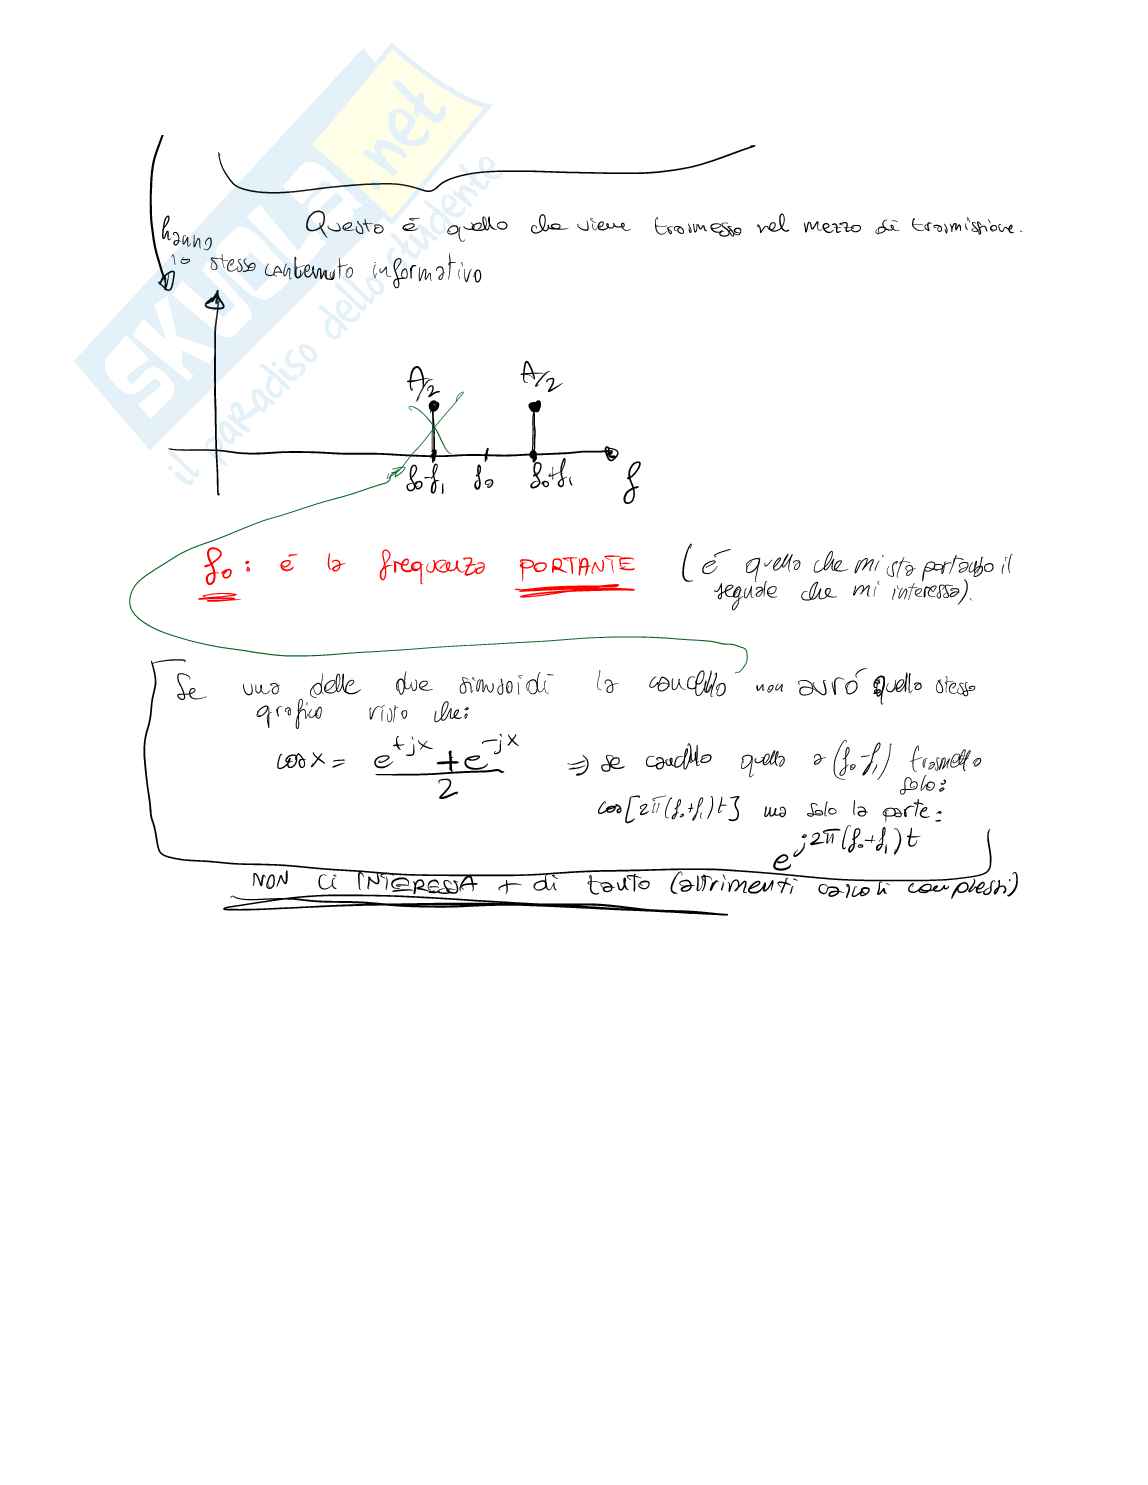 SKUOLA.net
il paradiso dello studente
Questo é quello che viene trasmesso nel mezzo di trasmissione.
hanno
lo stesso contenuto informativo
A/2 A/2
f0-f1 f0 f0+f1 f
f0: é la frequenza PORTANTE (é quella che mi sta portando il
segnale che mi interessa).
Se una delle due sinusoidi la cancello non avró quello stesso
grafico visto che:
cos x = e^{+jx} + e^{-jx} / 2 ⇒ se cancello quella a (f0-f1) trasmetto
solo:
cos[2π(f0+f1)t] ma solo la parte:
e^{j2π(f0+f1)t}
NON CI INTERESSA + di tanto (altrimenti calcoli complessi)